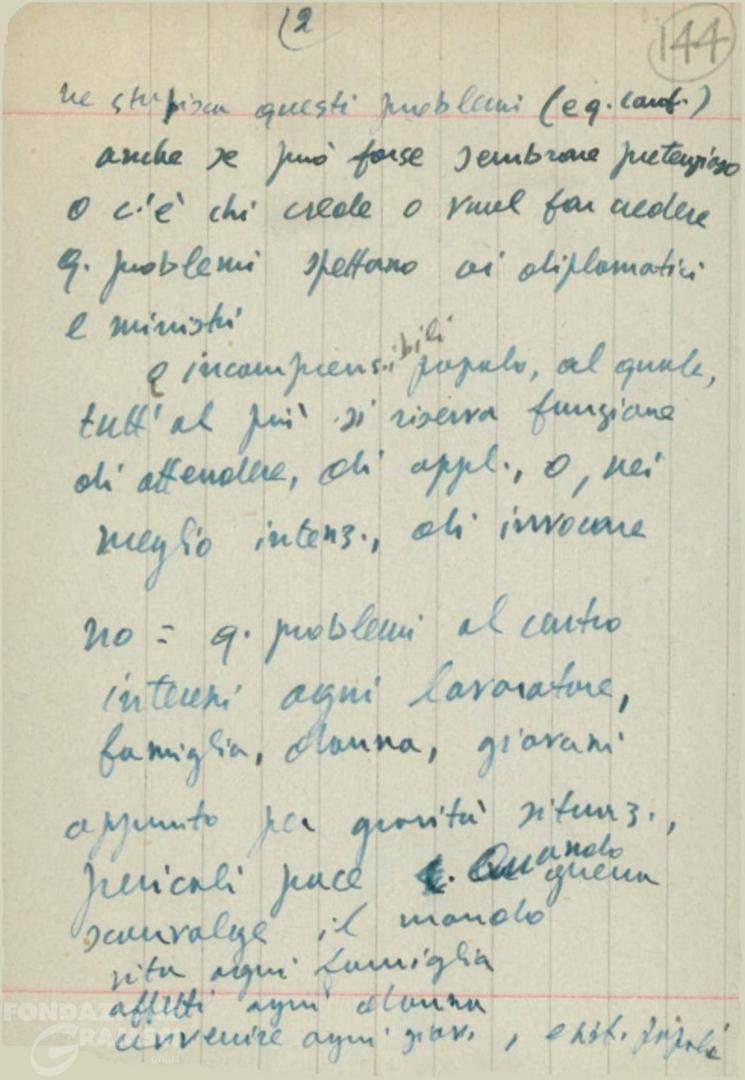 (2
144
ne stupisca questi problemi (e q. conf.)
anche se può forse sembrare pretenzioso
o c'è chi crede o vuol far credere
q. problemi spettano ai diplomatici
e ministri
e incomprensibili popolo, al quale,
tutt'al più si riserva funzione
di attendere, di appl., o, nei
meglio intenz., di invocare
no = q. problemi al centro
interessi ogni lavoratore,
famiglia, donna, giovani
appunto per gravità situaz.,
pericoli pace Quando guerra
sconvolge il mondo
vita ogni famiglia
affetti ogni donna
avvenire ogni giov., esist. popoli
FONDAZI
GRAMSCI